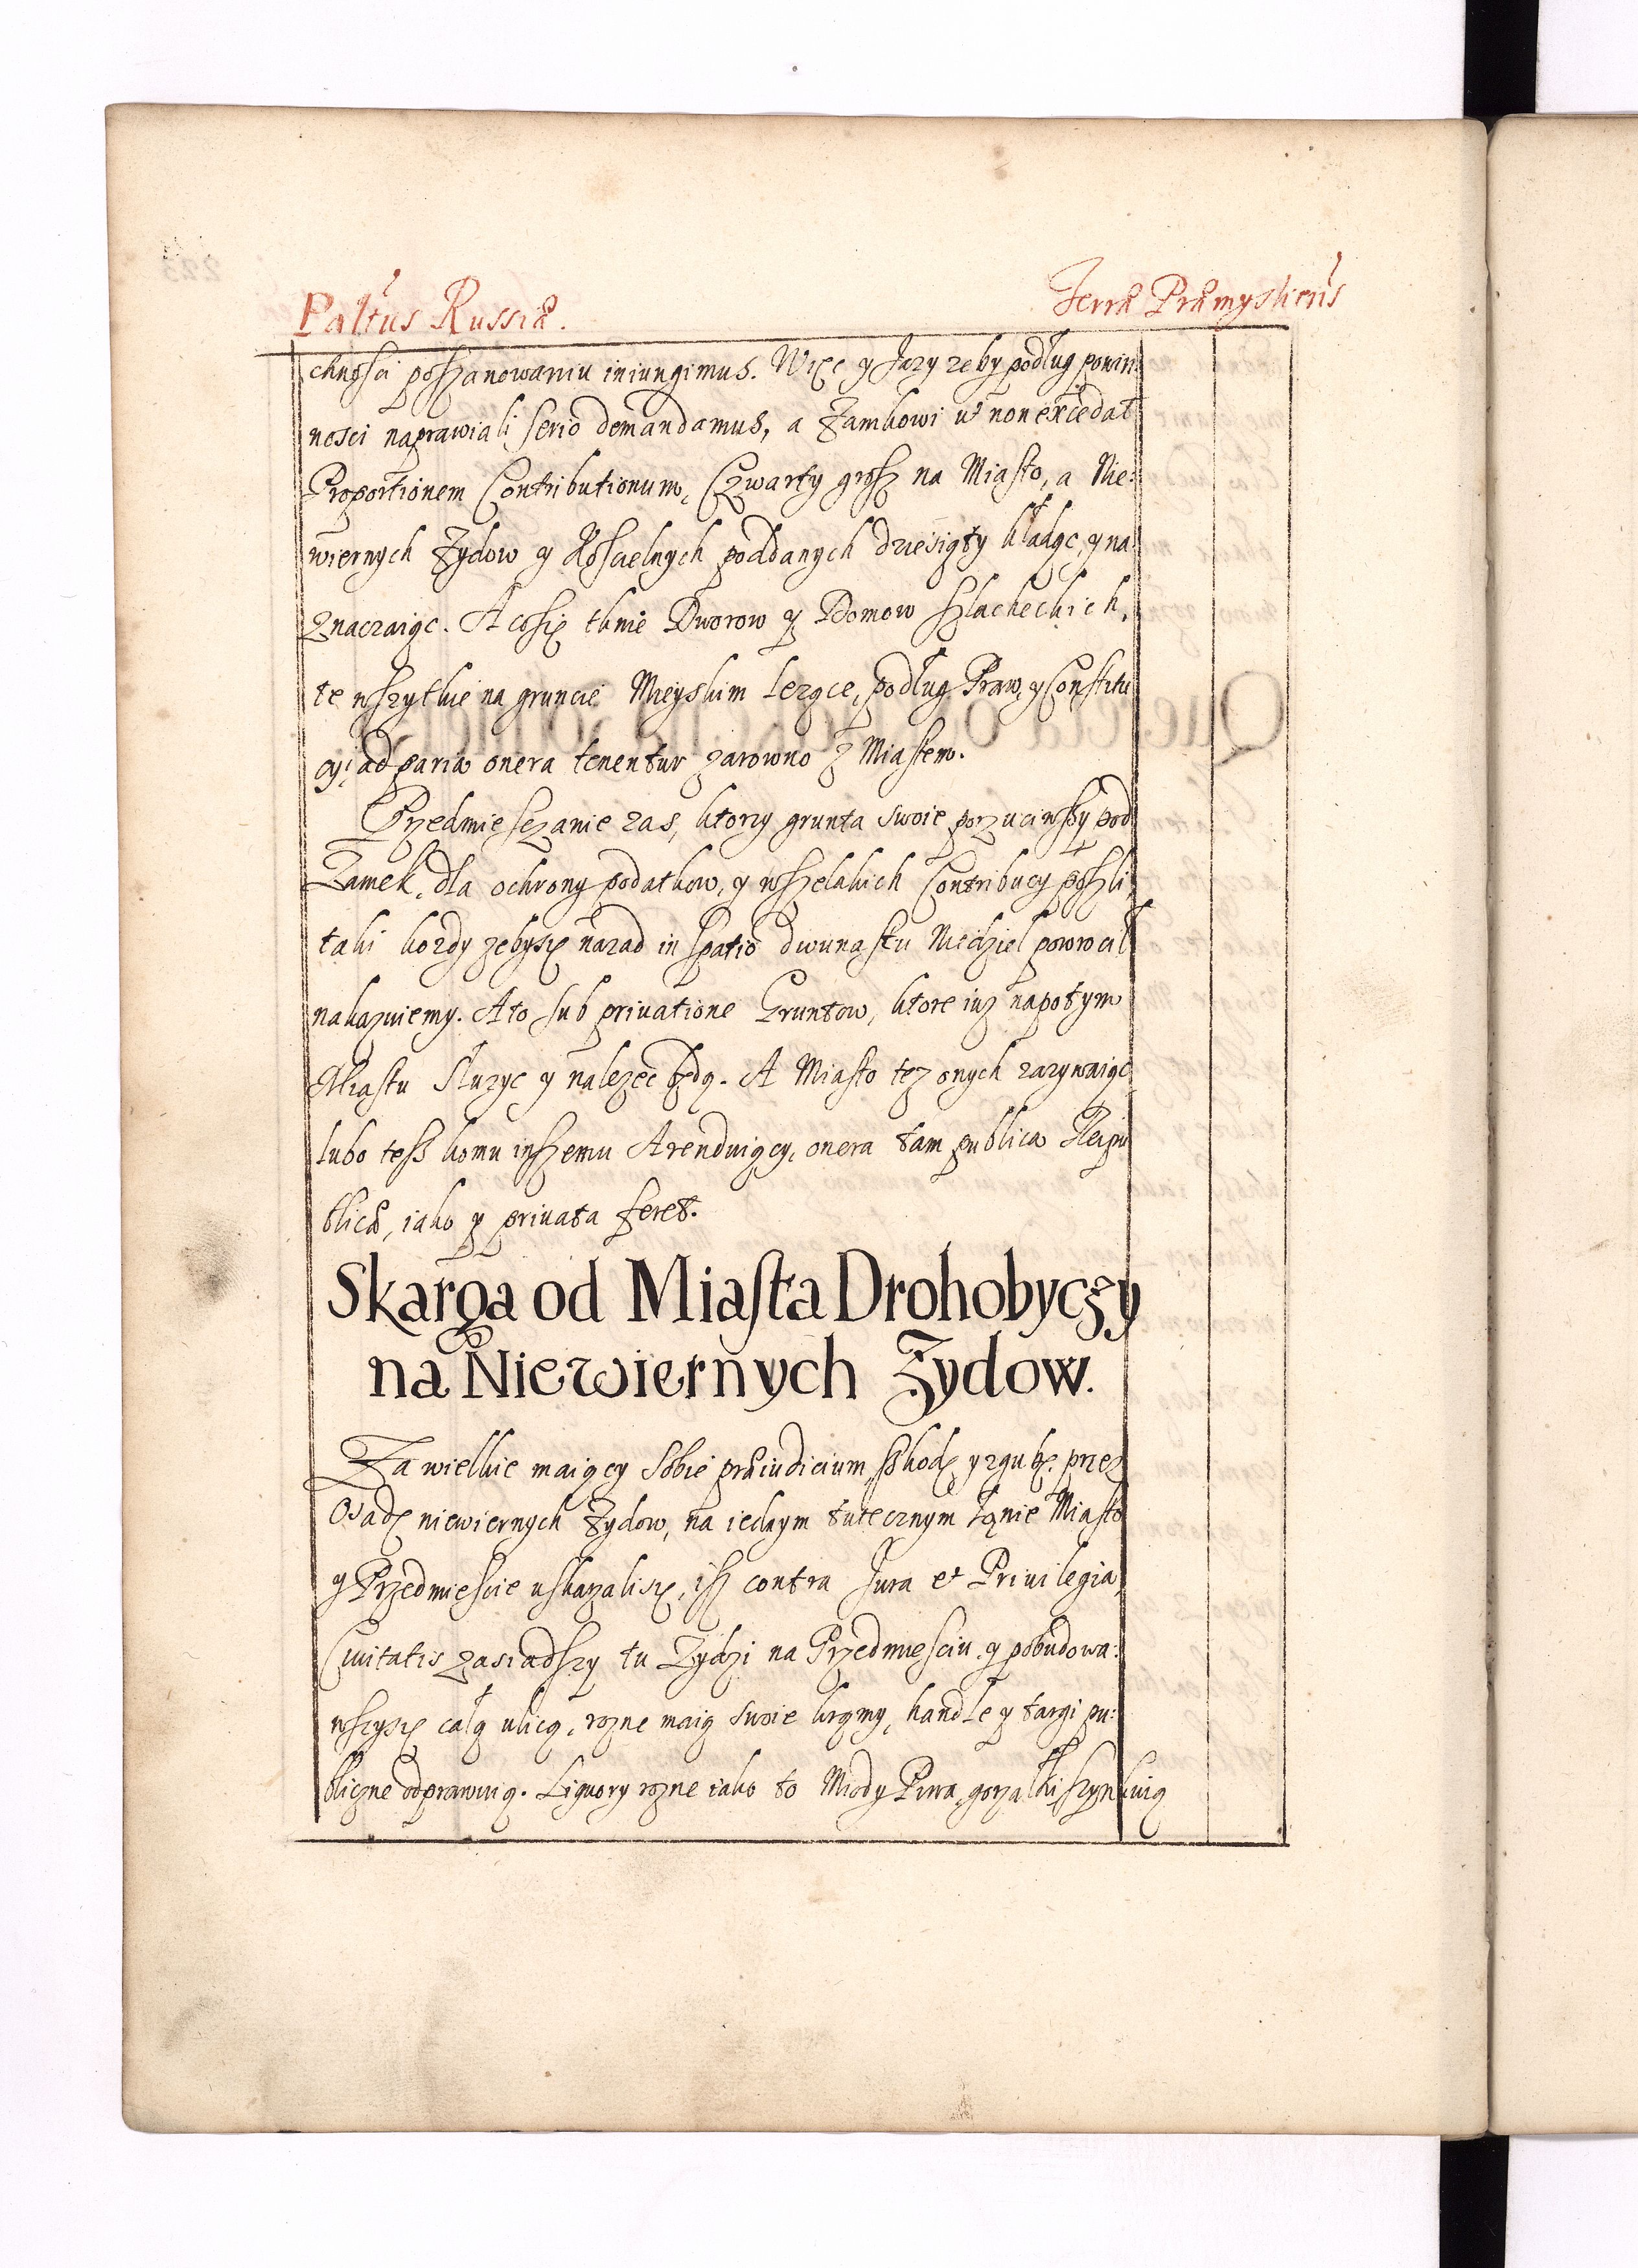 Paltus Russiæ.
Terra Præmysliens
chnosci poszanowaniu iniungimus. Więc y Jazy zeby podług powin:
nosci naprawiali serio demandamus, a Zamkowi ut non excedat
Proportionem Contributionum, Czwarty grosz na Miasto, a Nie:
wiernych Zydow y Koscielnych poddanych dziesiąty kładąc, y na
znaczaiąc. A cosię tknie Dworow y Domow szlacheckich,
te wszytkie na gruncie Mieyskim lezące, podług Praw, y Constitu
cyi ad paria onera tenentur zarowno z Miastem.
Przedmiesczanie zas, ktorzy grunta swoie porzuciwszy pod
Zamek, dla ochrony podatkow, y wszelakich Contribucy poszli,
taki kozdy zebysię nazad in spatio dwunastu Niedziel powrocił
nakazuiemy. A to sub privatione Gruntow, ktore iuz napotym
Miastu Słuzyc y nalezec będą. A Miasto tez onych zazywaiąc
lubo tess komu inszemu Arenduiący, onera tam publica Reipu
blicæ, iako y privata feret.
Skarga od Miasta Drohobyczy
na Niewiernych Zydow.
Za wielkie maiący sobie præiudicium, szkodę y zgubę, przez
Osadę niewiernych Zydow, na iednym tutecznym Łąnie Miasto
y Przedmiescie uskarzalisię, isz contra Jura et Privilegia
Civitatis zasiadszy tu Zydzi na Przedmiesciu, y pobudowa:
wszysię całą ulicą, rozne maią swoie kramy, handle y targi pu:
bliczne odprawuią. Liquory rozne iako to Miody Piwa, gorzałki szynkuią